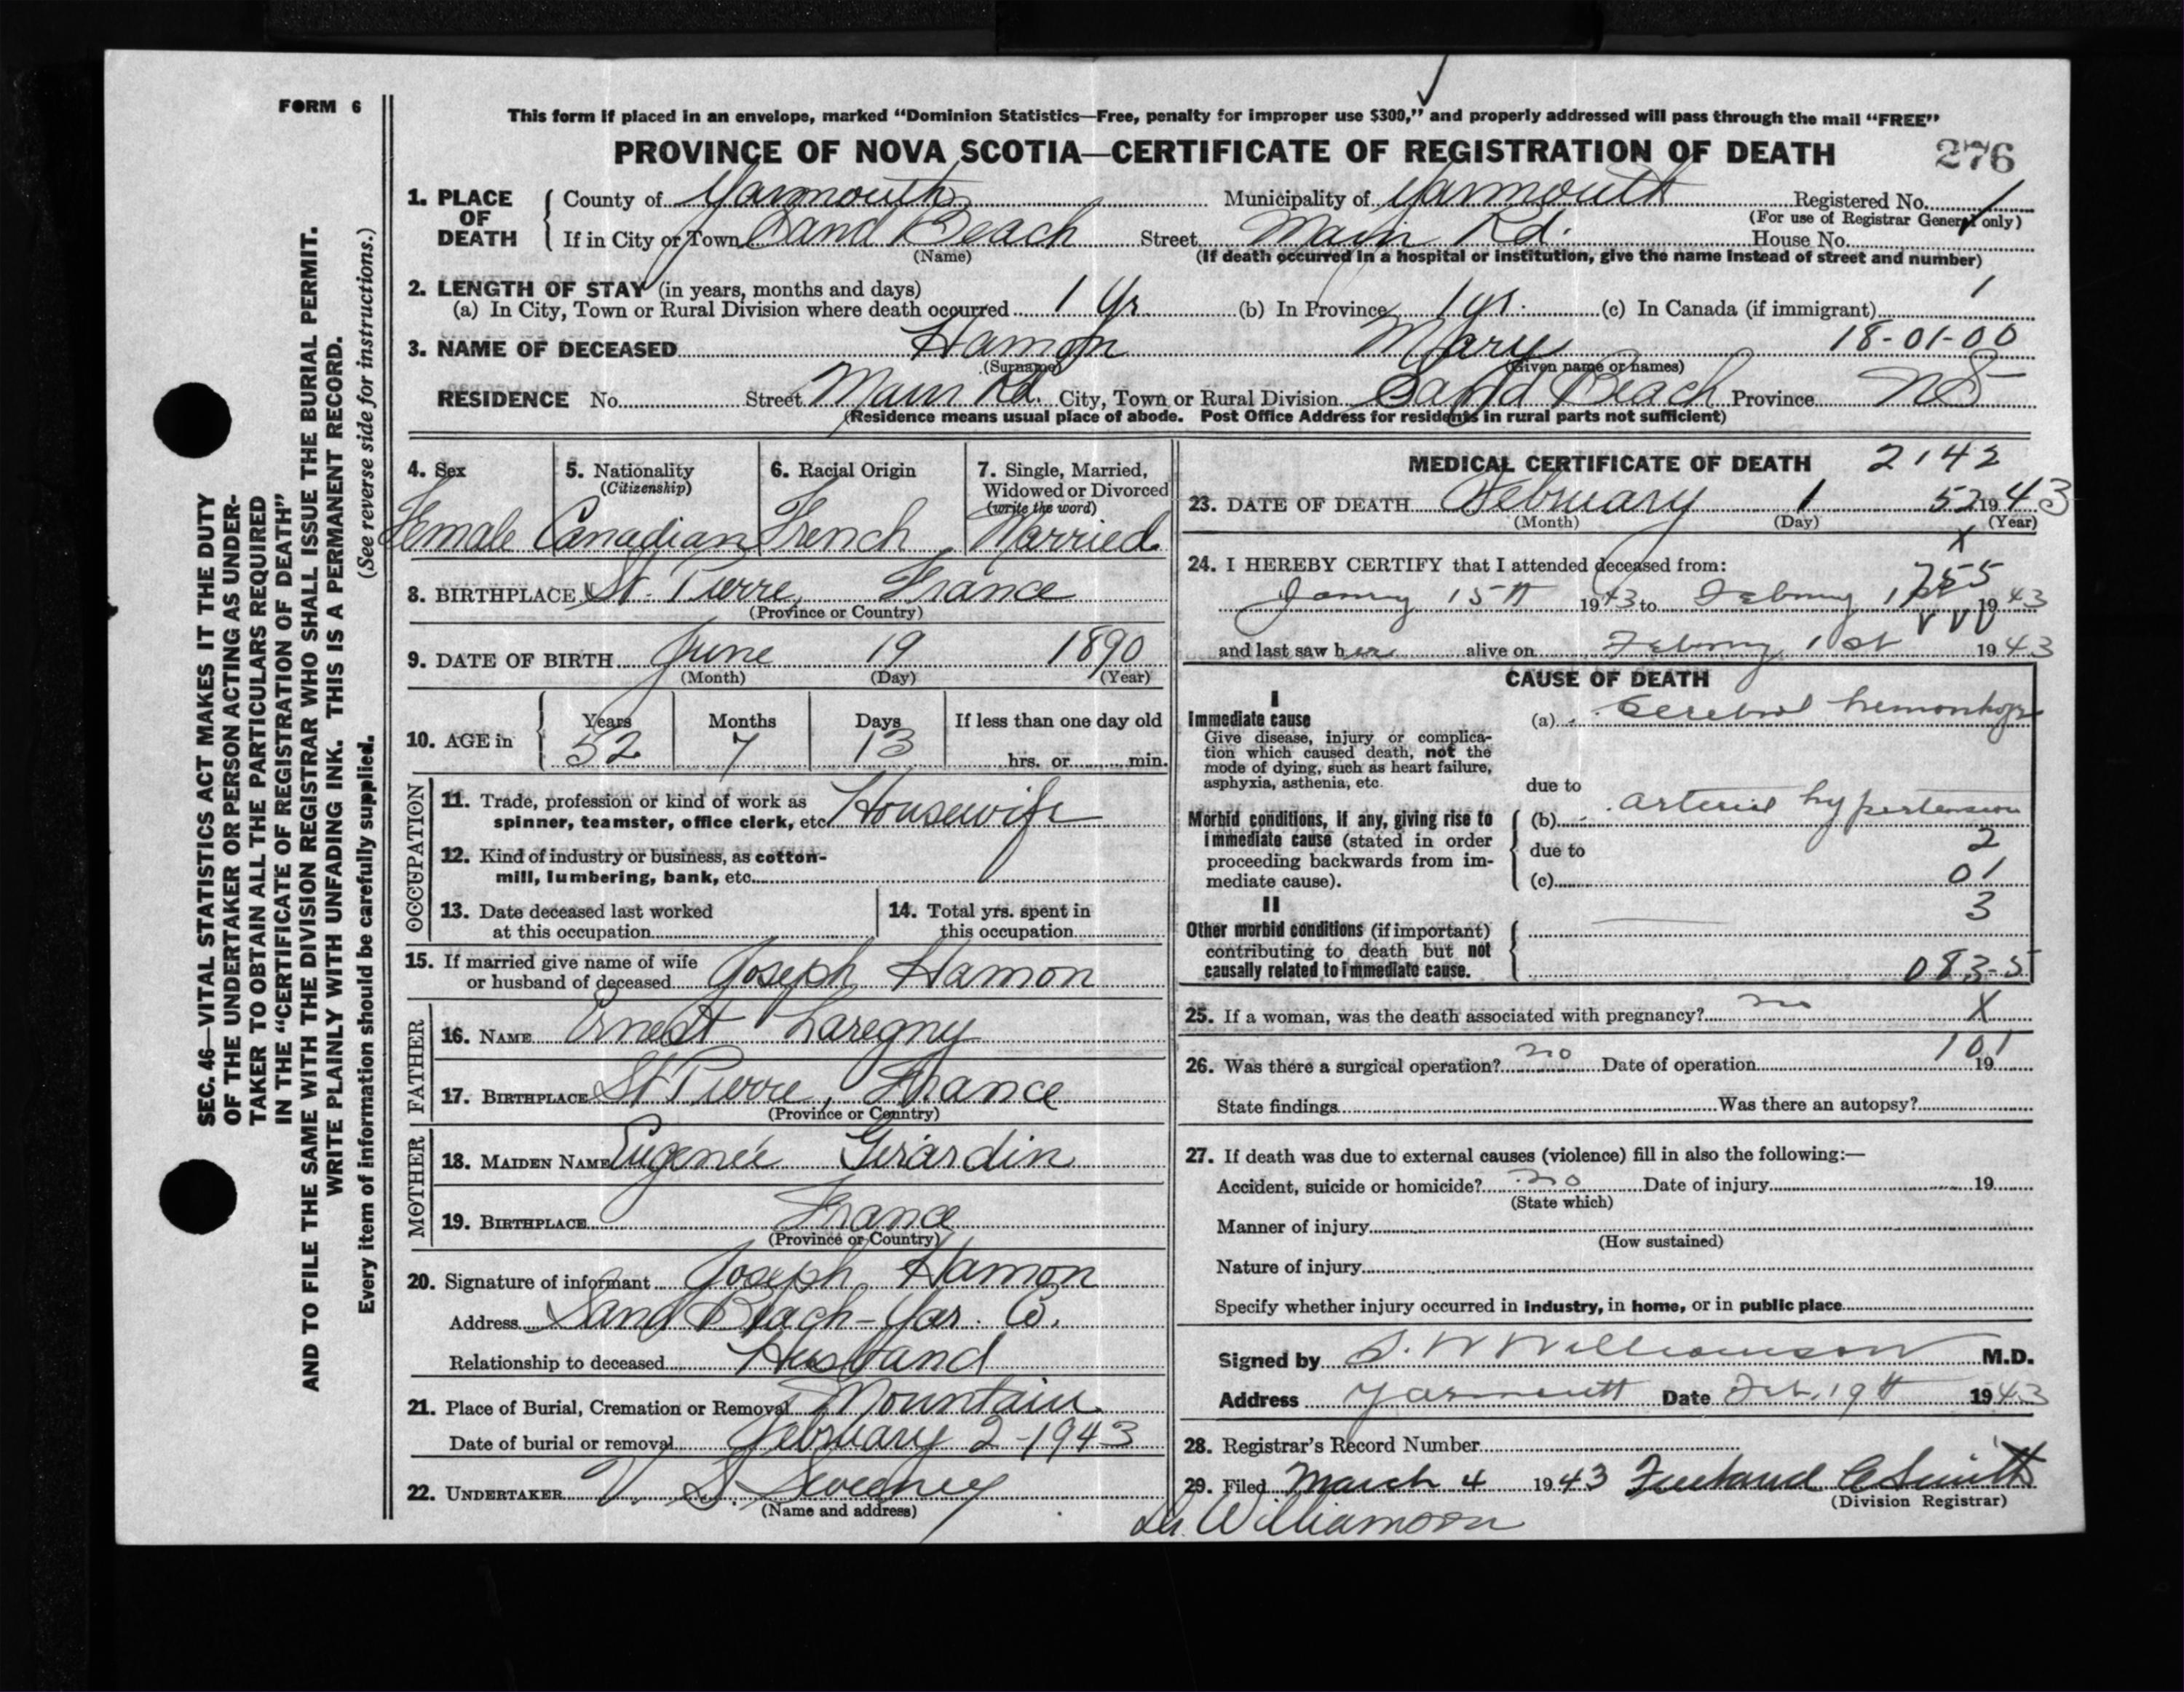 FORM 6
This form if placed in an envelope, marked "Dominion Statistics—Free, penalty for improper use $300," and properly addressed will pass through the mail "FREE"
PROVINCE OF NOVA SCOTIA—CERTIFICATE OF REGISTRATION OF DEATH 276
1. PLACE OF DEATH
County of Yarmouth Municipality of Yarmouth Registered No.
(For use of Registrar General only)
If in City or Town Sand Beach Street Main Rd. House No.
(Name) (If death occurred in a hospital or institution, give the name instead of street and number)
2. LENGTH OF STAY (in years, months and days)
(a) In City, Town or Rural Division where death occurred 1 Yr (b) In Province 1 yr. (c) In Canada (if immigrant) 1
3. NAME OF DECEASED Hamon Mary 18-01-00
(Surname) (Given name or names)
RESIDENCE No. Street Main Rd. City, Town or Rural Division Sand Beach Province NS
(Residence means usual place of abode. Post Office Address for residents in rural parts not sufficient)
4. Sex
Female
5. Nationality
(Citizenship)
Canadian
6. Racial Origin
French
7. Single, Married,
Widowed or Divorced
(write the word)
Married
8. BIRTHPLACE St. Pierre, France
(Province or Country)
9. DATE OF BIRTH June 19 1890
(Month) (Day) (Year)
10. AGE in
Years Months Days If less than one day old
52 7 13 hrs. or min.
OCCUPATION
11. Trade, profession or kind of work as
spinner, teamster, office clerk, etc. Housewife
12. Kind of industry or business, as cotton-
mill, lumbering, bank, etc.
13. Date deceased last worked
at this occupation
14. Total yrs. spent in
this occupation
15. If married give name of wife
or husband of deceased Joseph Hamon
FATHER
16. NAME Ernest Laregny
17. BIRTHPLACE St Pierre, France
(Province or Country)
MOTHER
18. MAIDEN NAME Eugenée Girardin
19. BIRTHPLACE France
(Province or Country)
20. Signature of informant Joseph Hamon
Address Sand Beach - Yar. Co.
Relationship to deceased Husband
21. Place of Burial, Cremation or Removal Mountain
Date of burial or removal February 2 - 1943
22. UNDERTAKER V. S. Sweeney
(Name and address)
MEDICAL CERTIFICATE OF DEATH 2142
23. DATE OF DEATH February 1 52 1943
(Month) (Day) (Year)
X
24. I HEREBY CERTIFY that I attended deceased from:
15th 1943 to 1943
and last saw her alive on 1st 1943
CAUSE OF DEATH
I
Immediate cause
Give disease, injury or complica-
tion which caused death, not the
mode of dying, such as heart failure,
asphyxia, asthenia, etc.
(a) Cerebral hemorrhage
due to
Morbid conditions, if any, giving rise to
immediate cause (stated in order
proceeding backwards from im-
mediate cause).
(b) arterial hypertension
2
due to
(c) 01
II
3
Other morbid conditions (if important)
contributing to death but not
causally related to immediate cause.
083-5
25. If a woman, was the death associated with pregnancy? no X
26. Was there a surgical operation? no Date of operation 19
101
State findings Was there an autopsy?
27. If death was due to external causes (violence) fill in also the following:—
Accident, suicide or homicide? no Date of injury 19
(State which)
Manner of injury
(How sustained)
Nature of injury
Specify whether injury occurred in industry, in home, or in public place
Signed by S. W Williamson M.D.
Address Yarmouth Date Feb. 19th 1943
28. Registrar's Record Number
29. Filed March 4 1943 Smith
(Division Registrar)
Dr. Williamson
SEC. 46—VITAL STATISTICS ACT MAKES IT THE DUTY
OF THE UNDERTAKER OR PERSON ACTING AS UNDER-
TAKER TO OBTAIN ALL THE PARTICULARS REQUIRED
IN THE "CERTIFICATE OF REGISTRATION OF DEATH"
AND TO FILE THE SAME WITH THE DIVISION REGISTRAR WHO SHALL ISSUE THE BURIAL PERMIT.
WRITE PLAINLY WITH UNFADING INK. THIS IS A PERMANENT RECORD.
Every item of information should be carefully supplied. (See reverse side for instructions.)